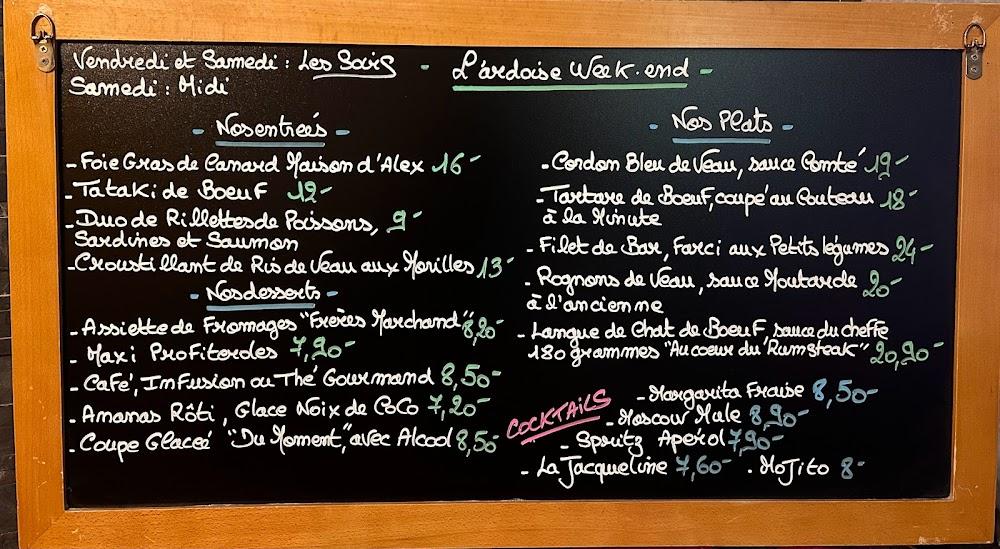 Vendredi et Samedi : Les Soirs - L'ardoise Week-end -
Samedi : Midi
- Nos entreés -
- Foie Gras de Canard Maison d'Alex 16-
- Tataki de Boeuf 12-
- Duo de Rillettes de Poissons, 9-
Sardines et Saumon
- Croustillant de Ris de Veau aux Morilles 13-
- Nos desserts -
- Assiette de Fromages "Frères Marchand" 8,20-
- Maxi Profiteroles 7,90-
- Café, Infusion ou Thé Gourmand 8,50-
- Ananas Rôti, Glace Noix de CoCo 7,20-
- Coupe Glaceé "Du Moment", avec Alcool 8,50
- Nos Plats -
- Cordon Bleu de Veau, sauce Comté 19-
- Tartare de Boeuf, coupé au Couteau 18-
à la Minute
- Filet de Bar, Farci aux Petits légumes 24-
- Rognons de Veau, sauce Moutarde 20-
à l'ancienne
- Langue de Chat de Boeuf, sauce du cheffe
180 grammes "Au coeur du Rumsteak" 20,90-
COCKTAILS
- Margarita Fraise 8,50-
- Moscow Mule 8,90-
- Spritz Aperol 7,90-
- La Jacqueline 7,60- . MoJito 8-